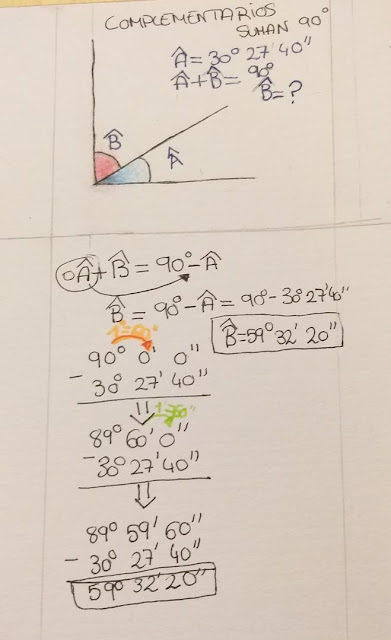 COMPLEMENTARIOS
SUMAN 90°
Â = 30° 27' 40''
Â + B̂ = 90°
B̂ = ?
B̂
Â
Â + B̂ = 90° - Â
B̂ = 90° - Â = 90 - 30° 27' 40''
B̂ = 59° 32' 20''
1° = 60'
90° 0' 0''
- 30° 27' 40''
89° 60' 0''
- 30° 27' 40''
89° 59' 60''
- 30° 27' 40''
59° 32' 20''